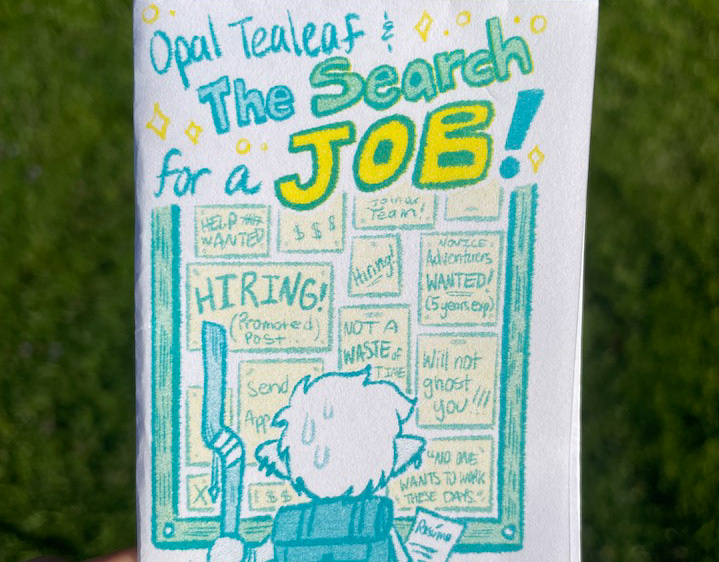 Opal Tealeaf &
The Search
for a JOB!
HELP
WANTED
$ $ $
Join our
Team!
Hiring!
NOVICE
Adventurers
WANTED!
(5 years exp)
HIRING!
(Promoted
Post
NOT A
WASTE of
TIME
Will not
ghost
you!!!
Send
App
"NO ONE
WANTS TO WORK
THESE DAYS."
X
$ $
Résumé